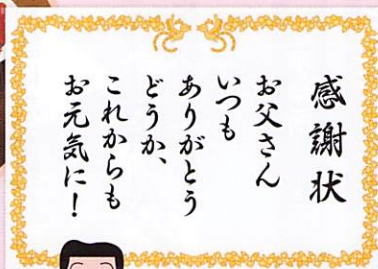 感謝状
お父さん
いつも
ありがとう
どうか、
これからも
お元気に！